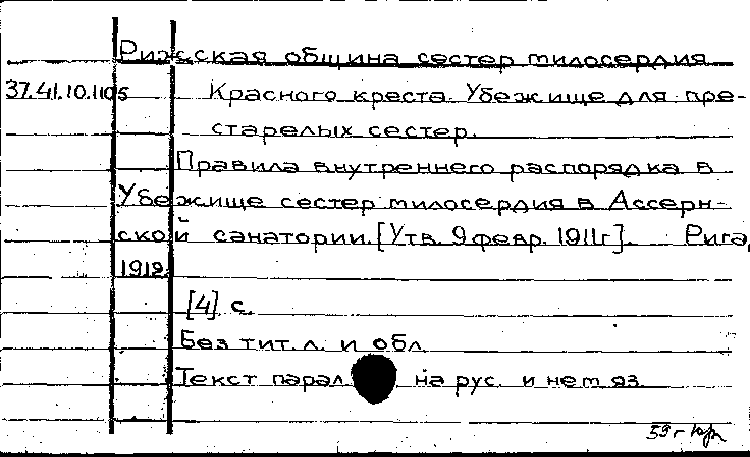 Рижская община сестер милосердия
37.41.10.1105 Красного креста. Убежище для пре-
старелых сестер.
Правила внутреннего распорядка в
Убежище сестер милосердия в Ассерн-
ской санатории. [Утв. 9 февр. 1911г]. Рига,
1912.
[4] с.
Без тит. л. и обл.
Текст парал. на рус. и нем яз.
59 г